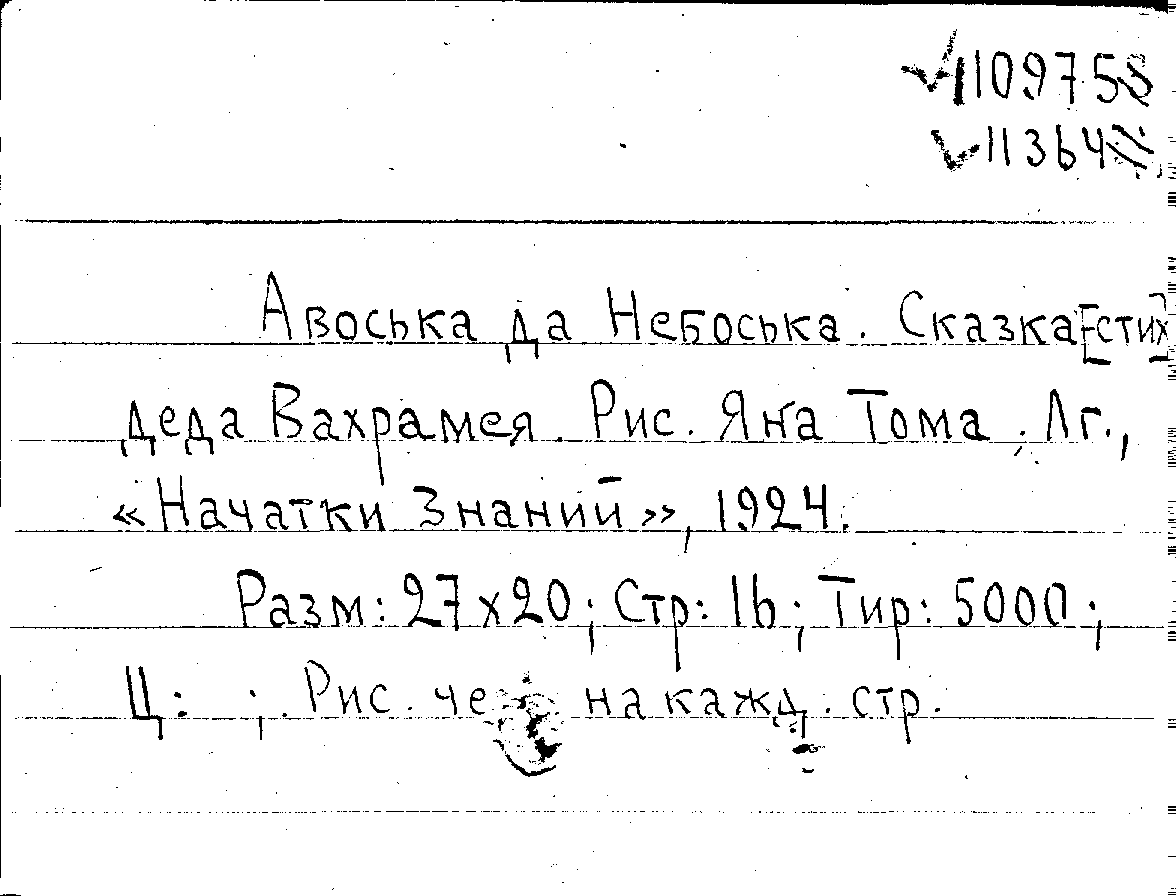 Авоська да Небоська. Сказка [стих]
деда Вахрамея. Рис. Яна Тома. Лг.,
«Начатки Знаний», 1924.
Разм: 27х20; Стр: 16; Тир: 5000;
Ц: ;. Рис. на кажд. стр.